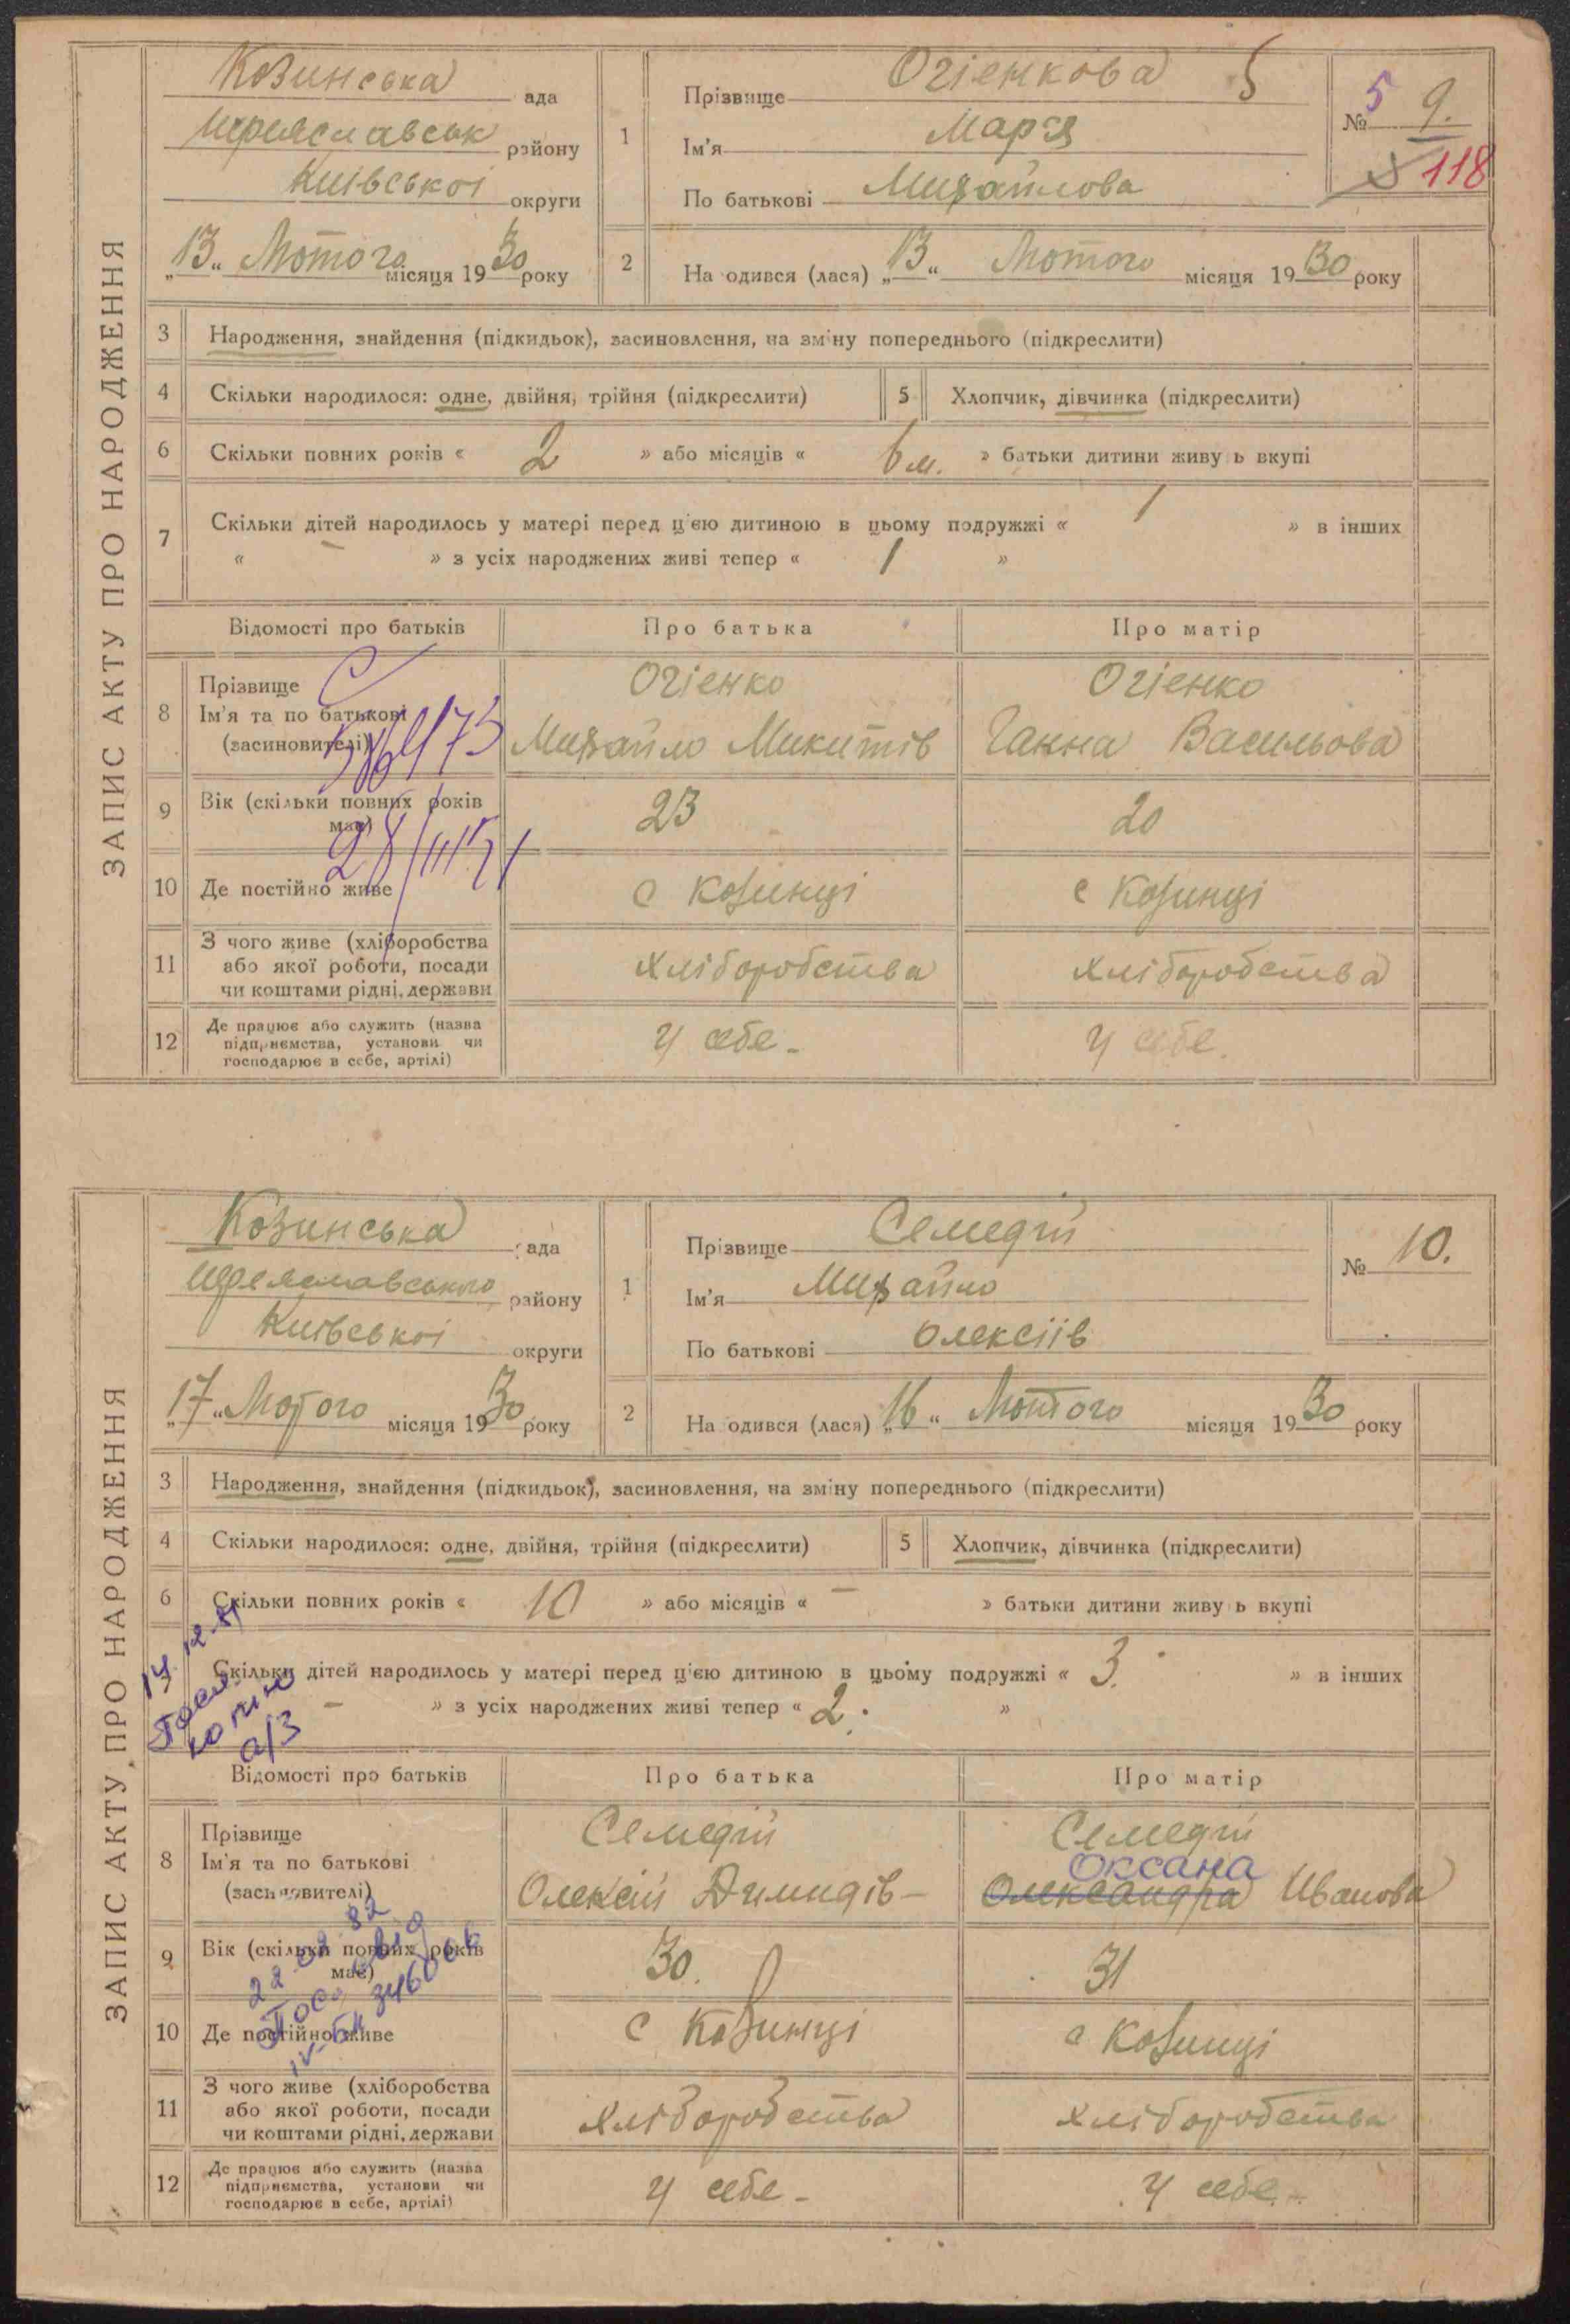 ЗАПИС АКТУ ПРО НАРОДЖЕННЯ
Козинська ада
Переяславськ району
Київської округи
„13“ Лютого місяця 1930 року
1 Прізвище Огієнкова 5
Ім'я Мар'я
По батькові Михайлова
№ 5 9.
118
2 На одився (лася) „13“ Лютого місяця 1930 року
3 Народження, знайдення (підкидьок), засиновлення, на зміну попереднього (підкреслити)
4 Скільки народилося: одне, двійня, трійня (підкреслити) 5 Хлопчик, дівчинка (підкреслити)
6 Скільки повних років « 2 » або місяців « 6 м. » батьки дитини живу ь вкупі
7 Скільки дітей народилось у матері перед ц'єю дитиною в цьому подружжі « 1 » в інших
« – » з усіх народжених живі тепер « 1 »
Відомості про батьків Про батька Про матір
8 Прізвище Огієнко Огієнко
Ім'я та по батькові Михайло Микитів Ганна Васильова
(засиновителі)
9 Вік (скільки повних років має) 23 20
10 Де постійно живе с Козинці с Козинці
11 З чого живе (хліборобства хліборобства хліборобства
або якої роботи, посади
чи коштами рідні, держави
12 Де працює або служить (назва У себе – У себе.
підприємства, установи чи
господарює в себе, артілі)
ЗАПИС АКТУ ПРО НАРОДЖЕННЯ
Козинська ада
Переяславського району
Київської округи
„17“ Лютого місяця 1930 року
1 Прізвище Семедій
Ім'я Михайло
По батькові Олексіїв
№ 10.
2 На одився (лася) „16“ Лютого місяця 1930 року
3 Народження, знайдення (підкидьок), засиновлення, на зміну попереднього (підкреслити)
4 Скільки народилося: одне, двійня, трійня (підкреслити) 5 Хлопчик, дівчинка (підкреслити)
6 Скільки повних років « 10 » або місяців « – » батьки дитини живу ь вкупі
Скільки дітей народилось у матері перед ц'єю дитиною в цьому подружжі « 3. » в інших
– » з усіх народжених живі тепер « 2. »
копию
а/з
Відомості про батьків Про батька Про матір
8 Прізвище Семедій Семедій
Оксана
Ім'я та по батькові Олексій Демидів – Олександра Иванова
(засиновителі)
9 Вік (скільки повних років має) 30. 31
10 Де постійно живе с Козинці с Козинці
11 З чого живе (хліборобства хліборобства хліборобства
або якої роботи, посади
чи коштами рідні, держави
12 Де працює або служить (назва У себе – У себе –
підприємства, установи чи
господарює в себе, артілі)